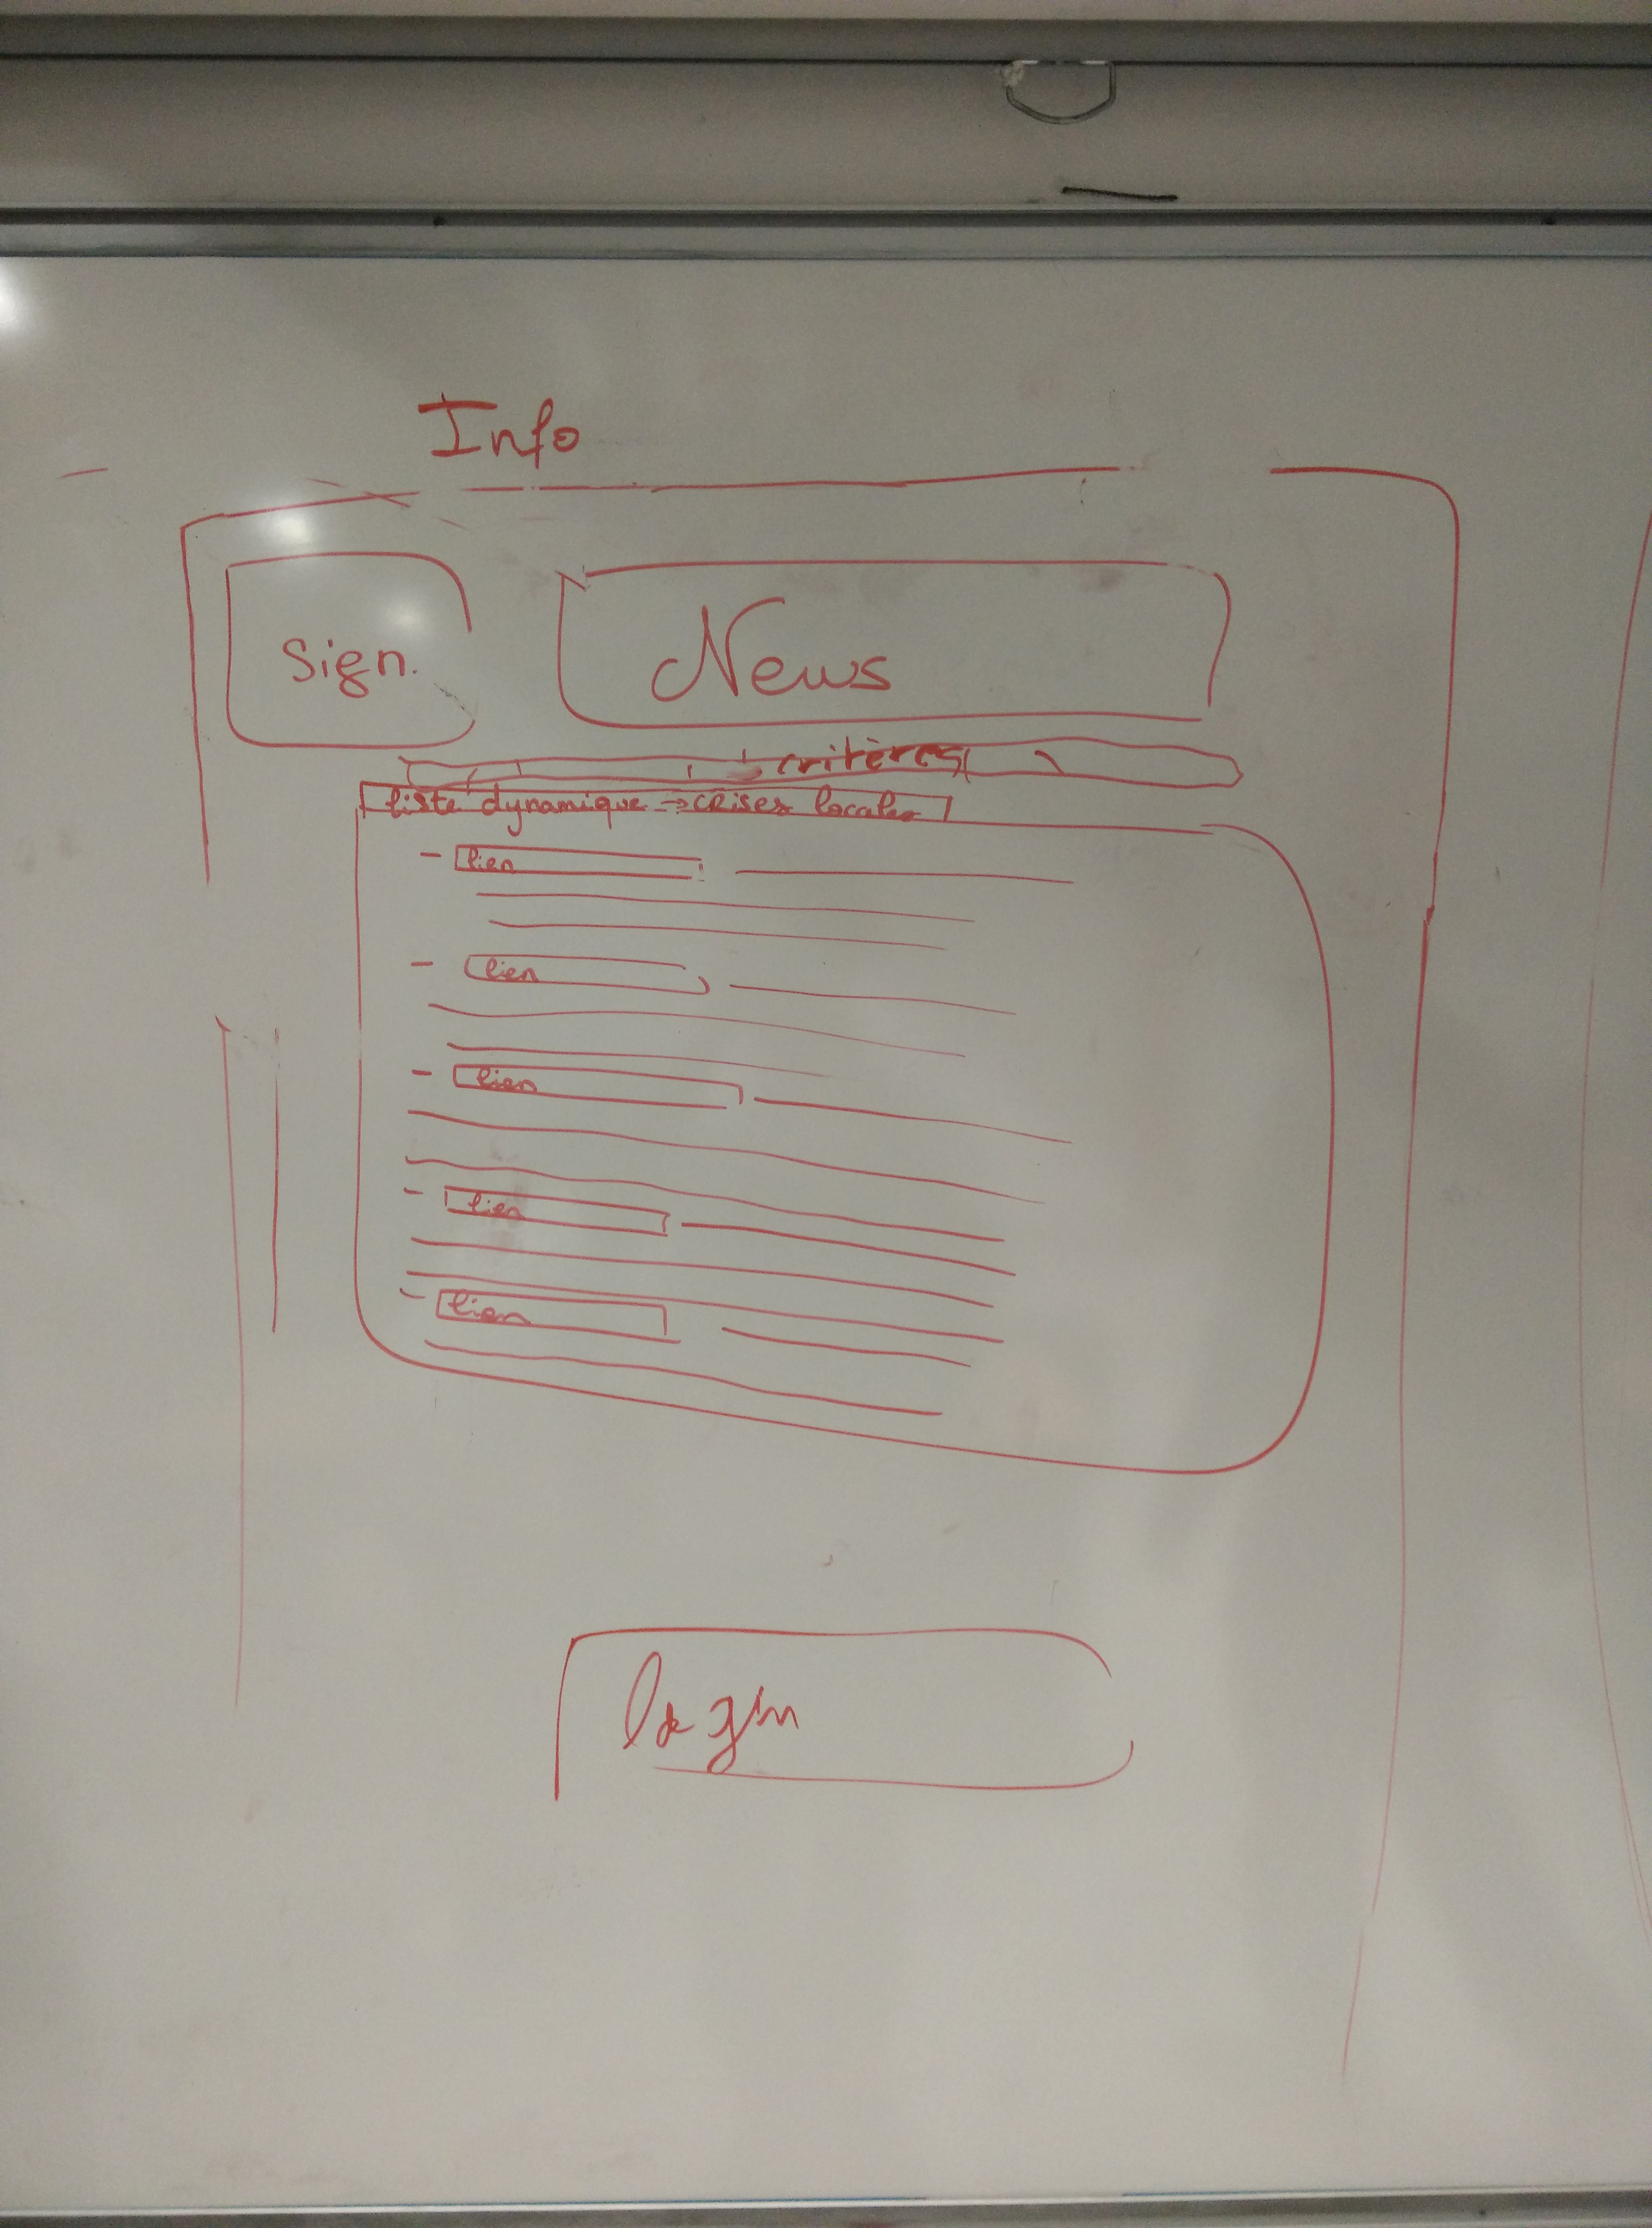 Info
Sign.
News
critères
liste dynamique → crises locales
- lien
- lien
- lien
- lien
- lien
login